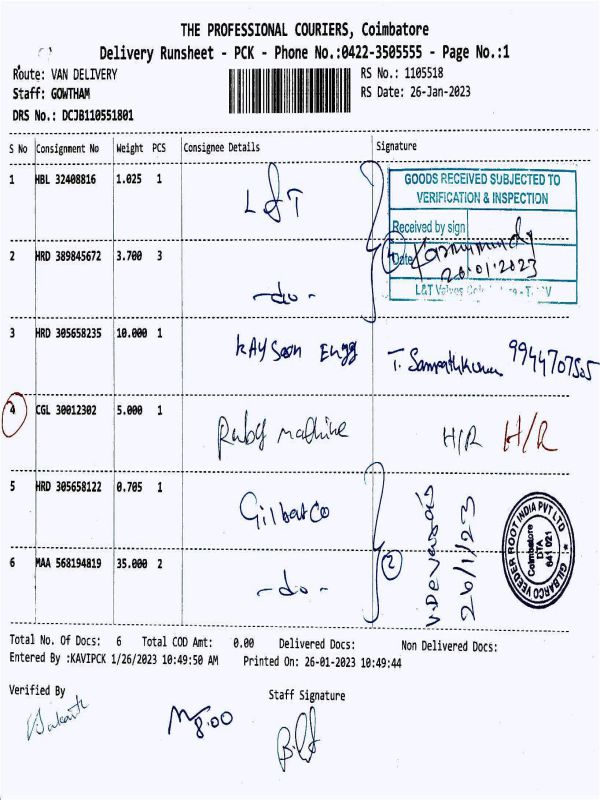 THE PROFESSIONAL COURIERS, Coimbatore
Delivery Runsheet - PCK - Phone No.:0422-3505555 - Page No.:1
Route: VAN DELIVERY RS No.: 1105518
Staff: GOWTHAM RS Date: 26-Jan-2023
DRS No.: DCJB110551801
S No Consignment No Weight PCS Consignee Details Signature
1 HBL 32408816 1.025 1 L&T
GOODS RECEIVED SUBJECTED TO
VERIFICATION & INSPECTION
Received by sign
Date 26.01.2023
L&T Valves
2 HRD 389845672 3.700 3 -do-
3 HRD 305658235 10.000 1 KAY Soon Engg T. Sampathkumar 9944707505
4 CGL 30012302 5.000 1 Ruby machine H/R H/R
5 HRD 305658122 0.705 1 Gilbarco
6 MAA 568194819 35.000 2 -do- 2
V.Devaraj
26/1/23
GILBARCO VEEDER ROOT INDIA PVT LTD
Coimbatore
DTA
641 021
Total No. Of Docs: 6 Total COD Amt: 0.00 Delivered Docs: Non Delivered Docs:
Entered By :KAVIPCK 1/26/2023 10:49:50 AM Printed On: 26-01-2023 10:49:44
Verified By Staff Signature
8.00